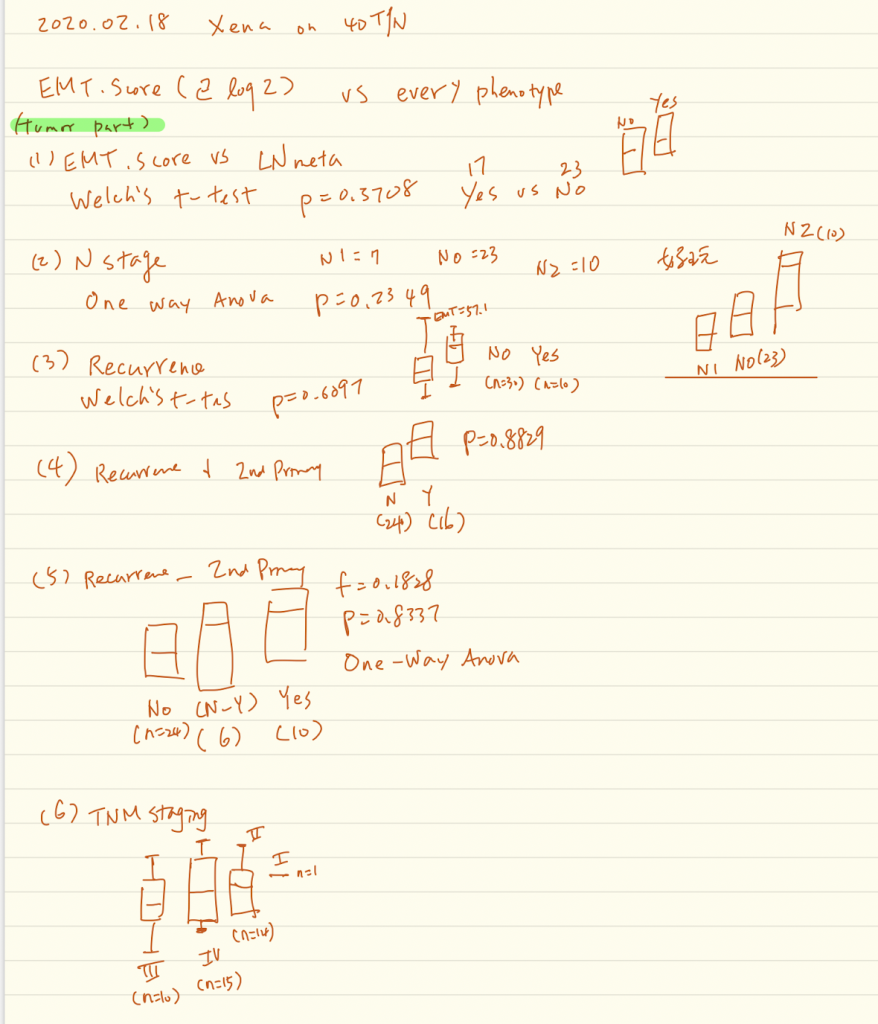 2020.02.18 Xena on 40T/N
EMT.Score (2 log2) vs every phenotype
(tumor part)
No Yes
(1) EMT.Score vs LN meta
17 23
Welch's t-test p=0.3708 Yes vs No
(2) N stage N1=7 N0=23 N2=10
N2(10)
N1 N0(23)
One way Anova p=0.2349
EMT=57.1
(3) Recurrence No Yes
(n=30) (n=10)
Welch's t-tes p=0.6097
(4) Recurrene + 2nd Primary p=0.8829
N Y
(24) (16)
(5) Recurrene - 2nd Primary f=0.1828
p=0.8337
One-Way Anova
No (N-Y) Yes
(n=24) (6) (10)
(6) TNM staging
II
I
n=1
(n=14)
III IV
(n=10) (n=15)